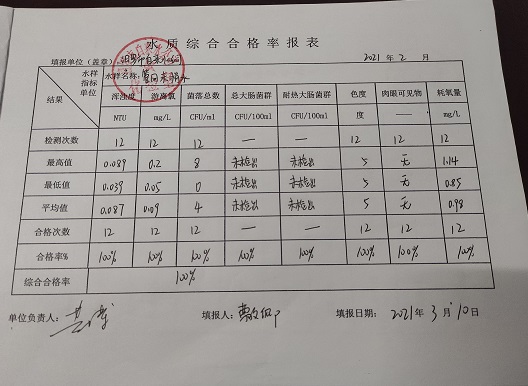 水质综合合格率报表
填报单位(盖章) 2021年2月
水样 水样名称: 管网末梢水
指标 浑浊度 游离氯 菌落总数 总大肠菌群 耐热大肠菌群 色度 肉眼可见物 耗氧量
单位
结果 NTU mg/L CFU/ml CFU/100ml CFU/100ml 度 —— mg/L
检测次数 12 12 12 — — 12 12 12
最高值 0.089 0.2 8 未检出 未检出 5 无 1.14
最低值 0.039 0.05 0 未检出 未检出 5 无 0.85
平均值 0.087 0.09 4 未检出 未检出 5 无 0.98
合格次数 12 12 12 — — 12 12 12
合格率% 100% 100% 100% 100% 100% 100% 100% 100%
综合合格率 100%
单位负责人: 填报人: 填报日期: 2021年3月10日